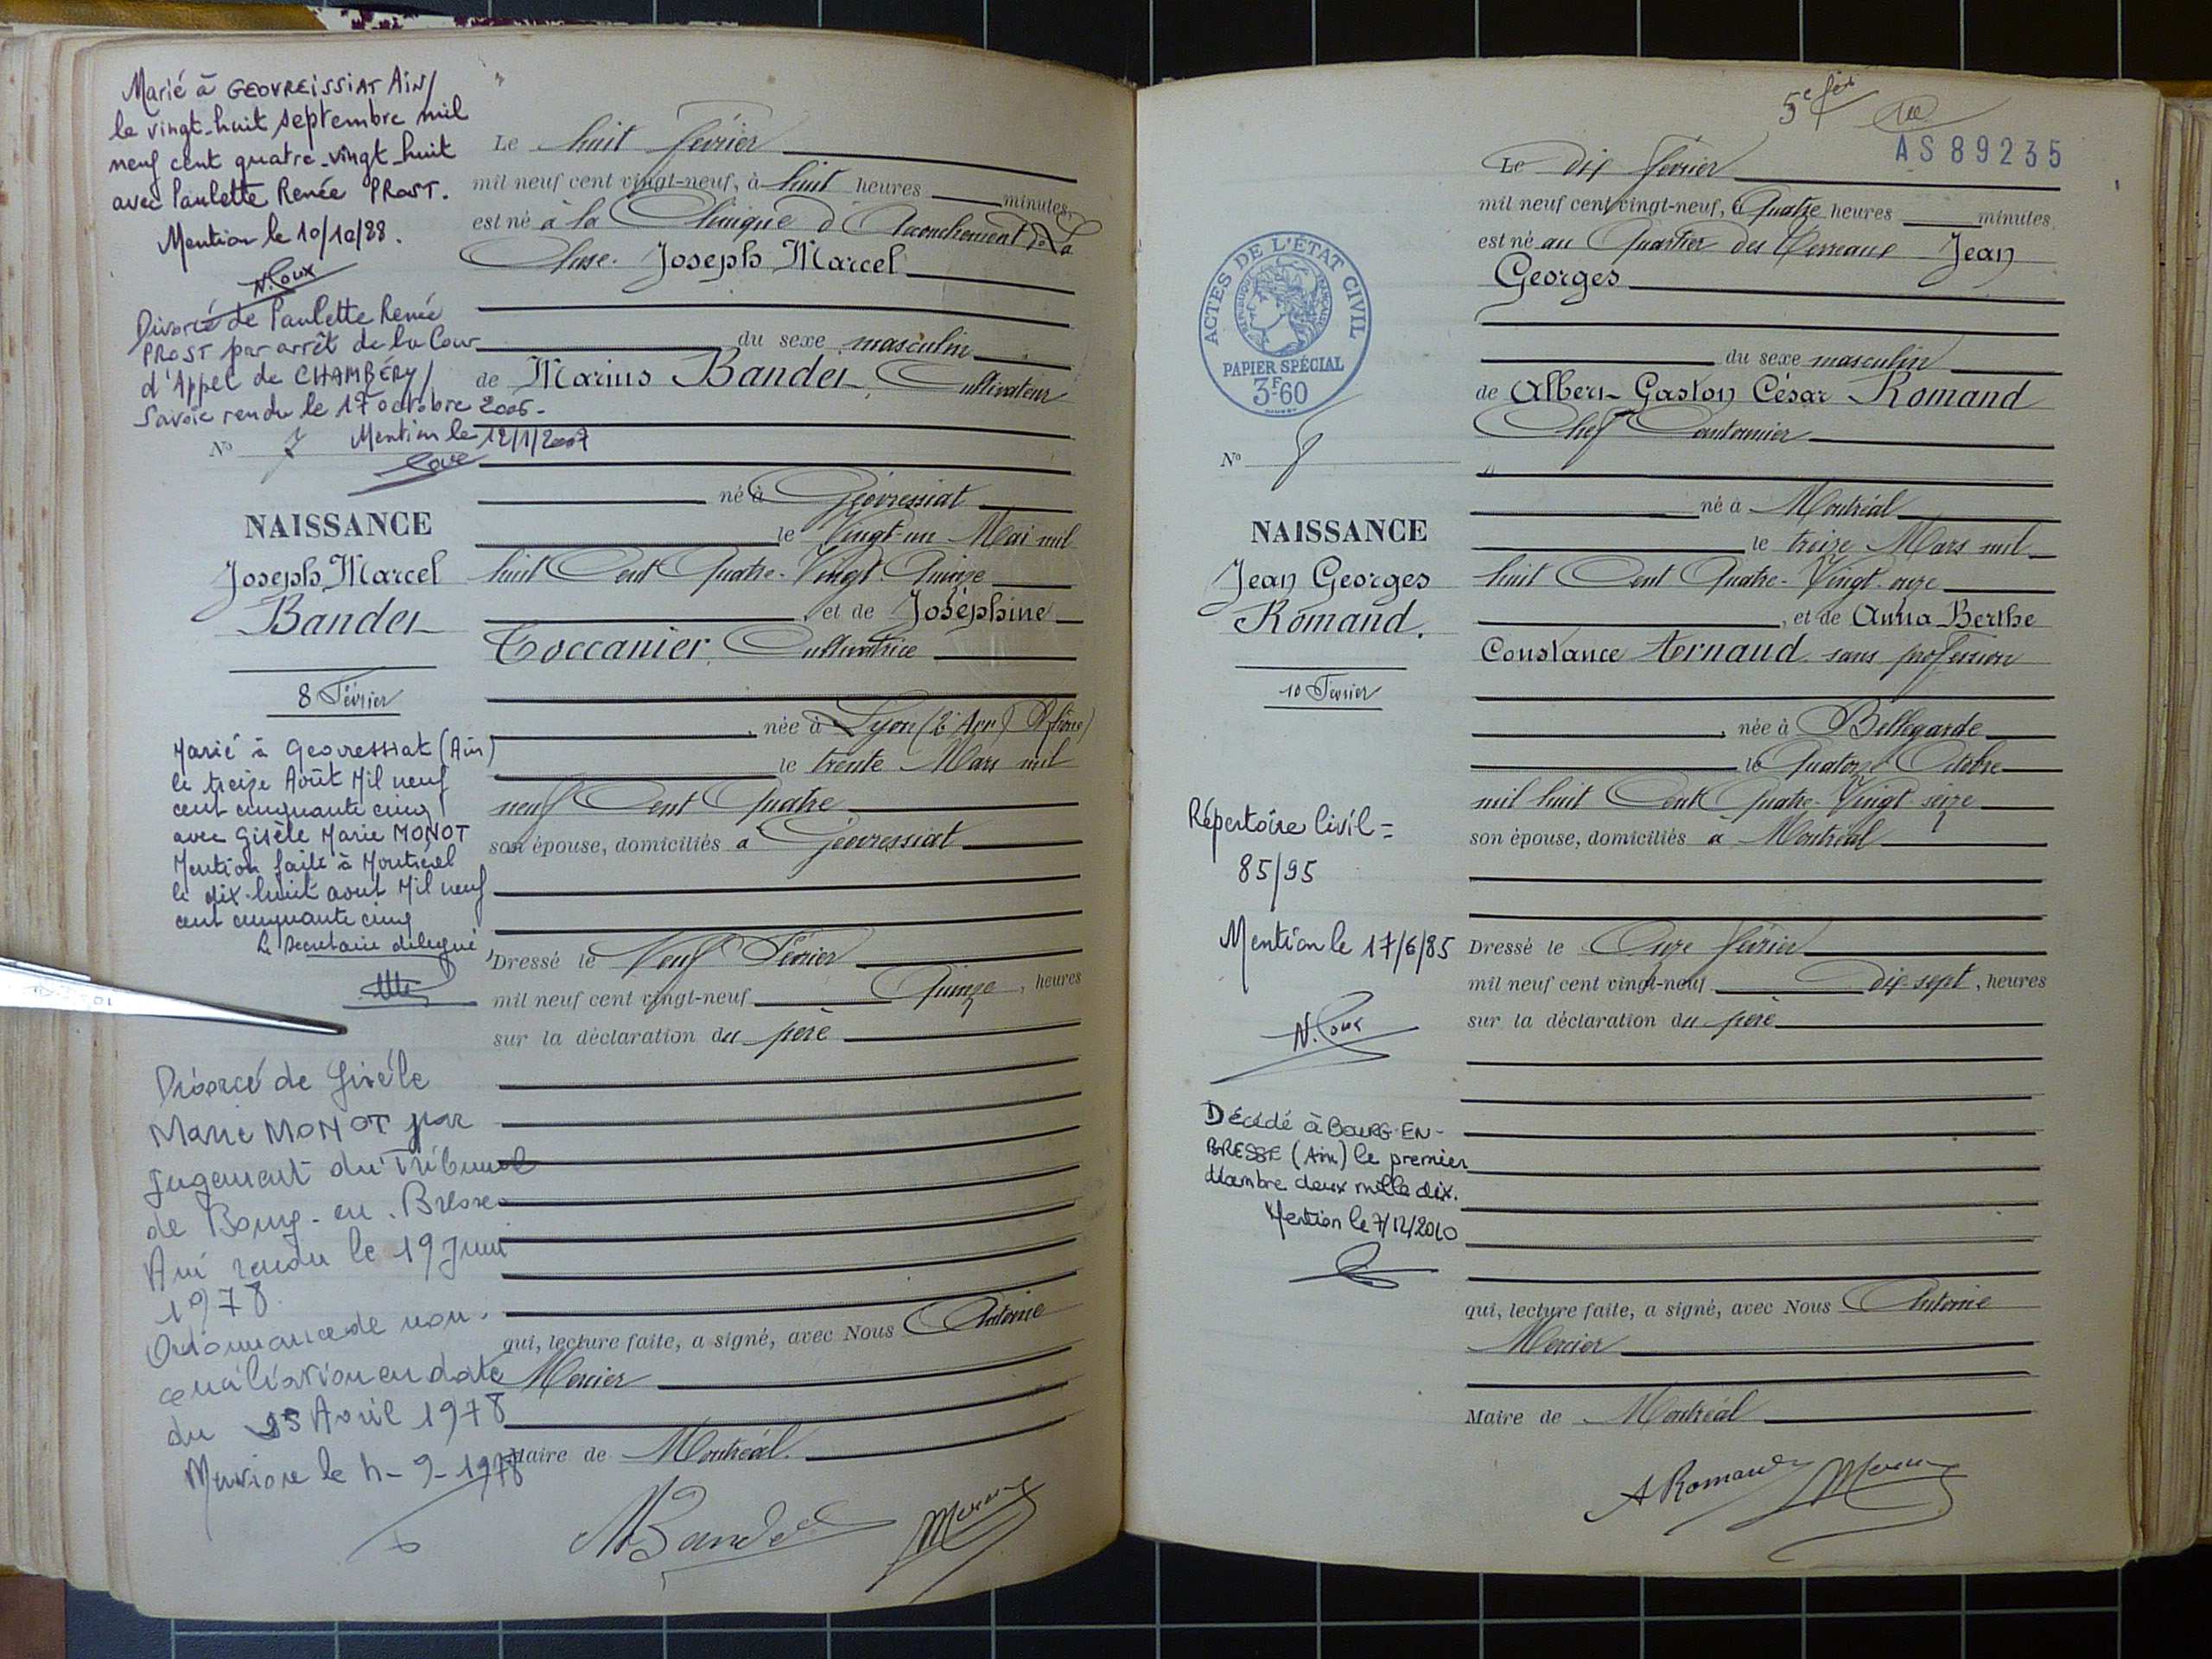 Marié à GEOVREISSIAT Ain/
le vingt-huit septembre mil
neuf cent quatre-vingt-huit
avec Paulette Renée PROST.
Mention le 10/10/88.
N. Roux
Divorcé de Paulette Renée
PROST par arrêt de la Cour
d'Appel de CHAMBÉRY/
Savoie rendu le 17 octobre 2006-
Mention le 12/1/2007
N° 7
NAISSANCE
Joseph Marcel
Bandet
8 Février
Marié à Geovressiat (Ain)
le treize Août Mil neuf
cent cinquante cinq
avec Gisèle Marie MONOT
Mention faite à Montréal
le dix-huit aout Mil neuf
cent cinquante cinq
Le Secrétaire délégué
Divorcé de Gisèle
Marie MONOT par
jugement du Tribunal
de Bourg-en-Bresse
Ain rendu le 19 Juin
1978.
Ordonnance de non-
conciliation en date
du 25 Avril 1978
Mention le 4-9-1978
Le huit février
mil neuf cent vingt-neuf, à huit heures minutes,
est né à la Clinique d'Accouchement de La
Cluse. Joseph Marcel
du sexe masculin
de Marius Bandet, Cultivateur
né à Géovressiat
le Vingt-un Mai mil
huit Cent Quatre-Vingt-Quinze
, et de Joséphine
Toccanier, Cultivatrice
, née à Lyon (2e Arr) Rhône)
le trente Mars mil
neuf Cent Quatre
son épouse, domiciliés à Géovressiat
Dressé le Neuf Février
mil neuf cent vingt-neuf Quinze, heures
sur la déclaration du père
qui, lecture faite, a signé, avec Nous Antoine
Mercier
Maire de Montréal.
M Bandet Mercier
5e fet
AS89235
ACTES DE L'ÉTAT CIVIL
RÉPUBLIQUE FRANÇAISE
PAPIER SPÉCIAL
3F60
N° 8
NAISSANCE
Jean Georges
Romand.
10 Février
Répertoire Civil =
85/95
Mention le 17/6/85
N. Roux
Décédé à BOURG-EN-
BRESSE (Ain) le premier
décembre deux mille dix.
Mention le 7/12/2010
Le dix février
mil neuf cent vingt-neuf, à Quatre heures minutes,
est né au Quartier des Terreaux Jean
Georges
du sexe masculin
de Albert Gaston César Romand
Chef Cantonnier
né à Montréal
le treize Mars mil
huit Cent Quatre-Vingt-onze
, et de Anna Berthe
Constance Hernaud sans profession
, née à Bellegarde
le Quatorze Octobre
mil huit Cent Quatre-Vingt-seize
son épouse, domiciliés à Montréal
Dressé le Onze février
mil neuf cent vingt-neuf dix-sept, heures
sur la déclaration du père
qui, lecture faite, a signé, avec Nous Antoine
Mercier
Maire de Montréal
A Romand Mercier